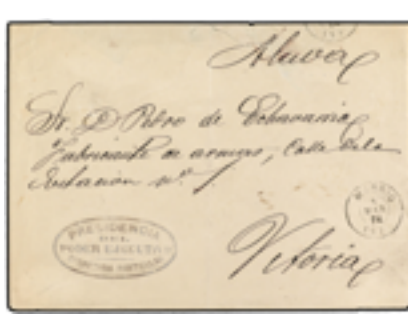 Alava
Sr. D Pedro de Echavarria
Fabricante de armas, Calle de la
Estacion nº
Vitoria
PRESIDENCIA
DEL
PODER EJECUTIVO